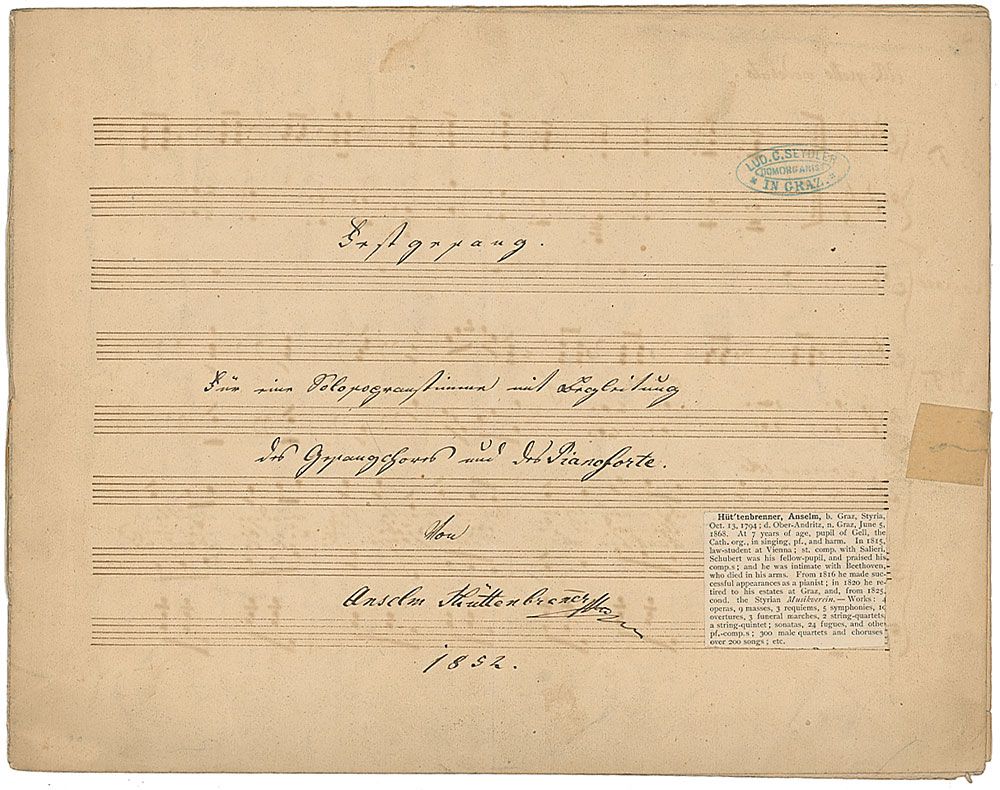 LUD. C. SEYDLER
DOMORGANIST
* IN GRAZ. *
Festgesang.
Für eine Solosopranstimme mit Begleitung
des Gesangchores und des Pianoforte.
Von
Anselm Hüttenbrenner
1852.
Hüt'tenbrenner, Anselm, b. Graz, Styria,
Oct. 13, 1794; d. Ober-Andritz, n. Graz, June 5,
1868. At 7 years of age, pupil of Gell, the
Cath. org., in singing, pf., and harm. In 1815,
law-student at Vienna; st. comp. with Salieri.
Schubert was his fellow-pupil, and praised his
comp.s; and he was intimate with Beethoven,
who died in his arms. From 1816 he made suc-
cessful appearances as a pianist; in 1820 he re-
tired to his estates at Graz, and, from 1825,
cond. the Styrian Musikverein.—Works: 4
operas, 9 masses, 3 requiems, 5 symphonies, 10
overtures, 3 funeral marches, 2 string-quartets,
a string-quintet; sonatas, 24 fugues, and othe
pf.-comp.s; 300 male quartets and choruses
over 200 songs; etc.